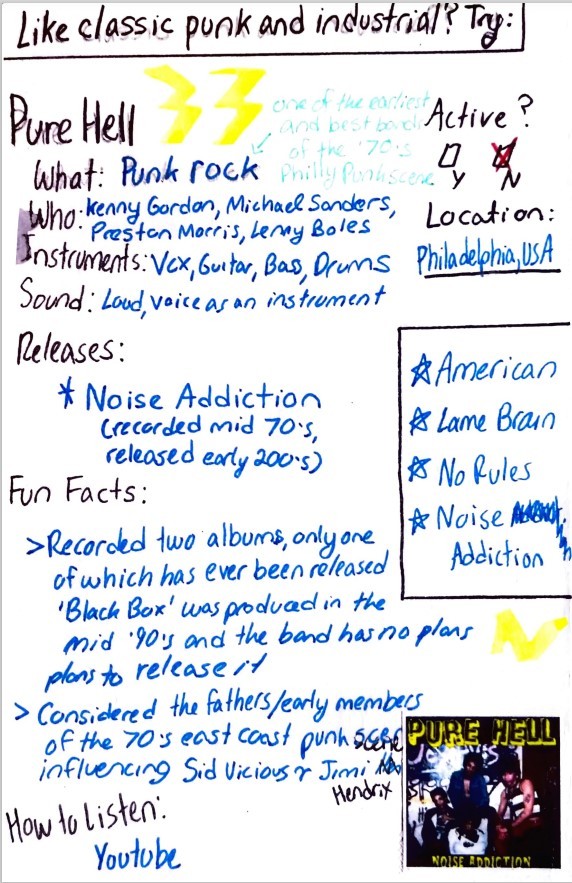 Like classic punk and industrial? Try:
Pure Hell
one of the earliest
and best bands
of the '70's
Philly Punk scene
Active?
Y N
What: Punk rock
Who: Kenny Gordon, Michael Sanders,
Preston Morris, Lenny Boles
Location:
Philadelphia, USA
Instruments: Vox, Guitar, Bass, Drums
Sound: Loud, voice as an instrument
Releases:
* Noise Addiction
(recorded mid 70's,
released early 200's)
☆ American
☆ Lame Brain
☆ No Rules
☆ Noise
Addiction
Fun Facts:
> Recorded two albums, only one
of which has ever been released
'Black Box' was produced in the
mid '90's and the band has no plans
plans to release it
> Considered the fathers/early members
of the 70's east coast punk scene
influencing Sid Vicious & Jimi
Hendrix
How to Listen:
Youtube
PURE HELL
NOISE ADDICTION